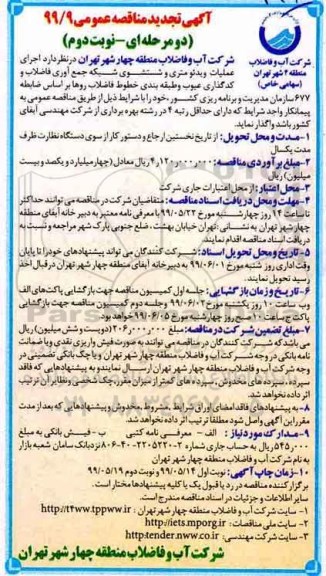 آگهی تجدید مناقصه عمومی ۹۹/۹
(دو مرحله ای - نوبت دوم)
شرکت آب و فاضلاب
منطقه ۴ شهر تهران
(سهامی خاص)
شرکت آب و فاضلاب منطقه چهار شهر تهران در نظر دارد اجرای
عملیات ویدئو متری و شستشوی شبکه جمع آوری فاضلاب و
کدگذاری عیوب و طبقه بندی خطوط فاضلاب روها بر اساس ضابطه
۶۷۷ سازمان مدیریت و برنامه ریزی کشور، خود را با شرایط ذیل از طریق مناقصه عمومی به
پیمانکار واجد شرایط که دارای حداقل رتبه ۴ در رشته بهره برداری از شرکت مهندسی آبفای
کشور باشد واگذار نماید.
۱- مدت و محل تحویل: از تاریخ نخستین ارجاع و دستور کار از سوی دستگاه نظارت ظرف
مدت یکسال
۲- مبلغ برآوردی مناقصه: ۴٫۱۲۰٫۰۰۰٫۰۰۰ ریال معادل (چهار میلیارد و یکصد و بیست
میلیون) ریال
۳- محل اعتبار: از محل اعتبارات جاری شرکت
۴- مهلت و محل دریافت اسناد مناقصه: متقاضیان شرکت در مناقصه می توانند حداکثر
تا ساعت ۱۴ روز چهارشنبه مورخ ۹۹/۰۵/۲۲ با معرفی نامه معتبر به دبیر خانه آبفای منطقه
چهار شهر تهران به نشانی: تهران خیابان بهشت، ضلع جنوبی پارک شهر مراجعه و نسبت به
دریافت اسناد مناقصه اقدام نمایند.
۵- تاریخ و محل تحویل اسناد: شرکت کنندگان می تواند پیشنهادهای خود را تا پایان
وقت اداری روز شنبه مورخ ۹۹/۰۶/۰۱ به دبیرخانه آبفای منطقه چهار شهر تهران در قبال اخذ
رسید تحویل نمایند.
۶- تاریخ و زمان بازگشایی: جلسه اول کمیسیون مناقصه جهت بازگشایی پاکت های الف
و ب ساعت ۱۰ روز یکشنبه مورخ ۹۹/۰۶/۰۲ و جلسه دوم کمیسیون مناقصه جهت بازگشایی
پاکت ج ساعت ۱۰ صبح روز چهارشنبه مورخ ۹۹/۰۶/۰۵ خواهد بود.
۷- مبلغ تضمین شرکت در مناقصه: مبلغ ۲۰۶٫۰۰۰٫۰۰۰ (دویست و شش میلیون) ریال
می باشد که شرکت کنندگان در مناقصه می توانند به صورت فیش واریزی نقدی و یا ضمانت
نامه بانکی در وجه شرکت آب و فاضلاب منطقه چهار شهر تهران و یا چک بانکی تضمینی در
وجه شرکت آب و فاضلاب منطقه چهار شهر تهران ارسال نمایند و به پیشنهادهایی که فاقد
سپرده، سپرده های مخدوش، سپرده های کمتر از میزان مقرر، چک شخصی و نظایر آن ترتیب
اثر داده نخواهد شد.
۸- به پیشنهادهای فاقد امضای اوراق شرایط، مشروط، مخدوش و پیشنهادهایی که بعد از مدت
مقرر این آگهی واصل شود مطلقا ترتیب اثر داده نخواهد شد.
۹- مدارک مورد نیاز: الف - معرفی نامه کتبی ب - فیش بانکی به مبلغ
۵۴۵٫۰۰۰ ریال به حساب جاری شماره نزد بانک سامان شعبه بازار
به نام شرکت آب و فاضلاب منطقه چهار شهر تهران
۱۰- زمان چاپ آگهی: نوبت اول ۹۹/۰۵/۱۴ و نوبت دوم ۹۹/۰۵/۱۹
برگزار کننده مناقصه در رد یا قبول یک یا کلیه پیشنهادها مختار است.
سایر اطلاعات و جزئیات در اسناد مناقصه مندرج است.
۱- سایت شرکت آب و فاضلاب منطقه چهار شهر تهران: http://t4www.tppww.ir
۲- سایت ملی مناقصات: http://iets.mporg.ir
۳- سایت شرکت مهندسی: http:tender.nww.co.ir
شرکت آب و فاضلاب منطقه چهار شهر تهران